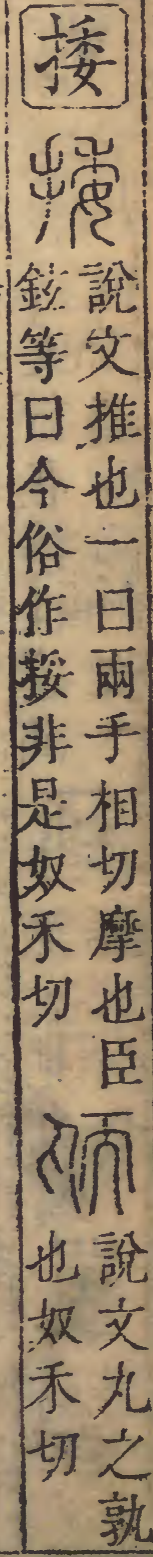 捼
捼
說文推也一曰兩手相切摩也臣
鉉等曰今俗作挼非是奴禾切
說文丸之孰
也奴禾切